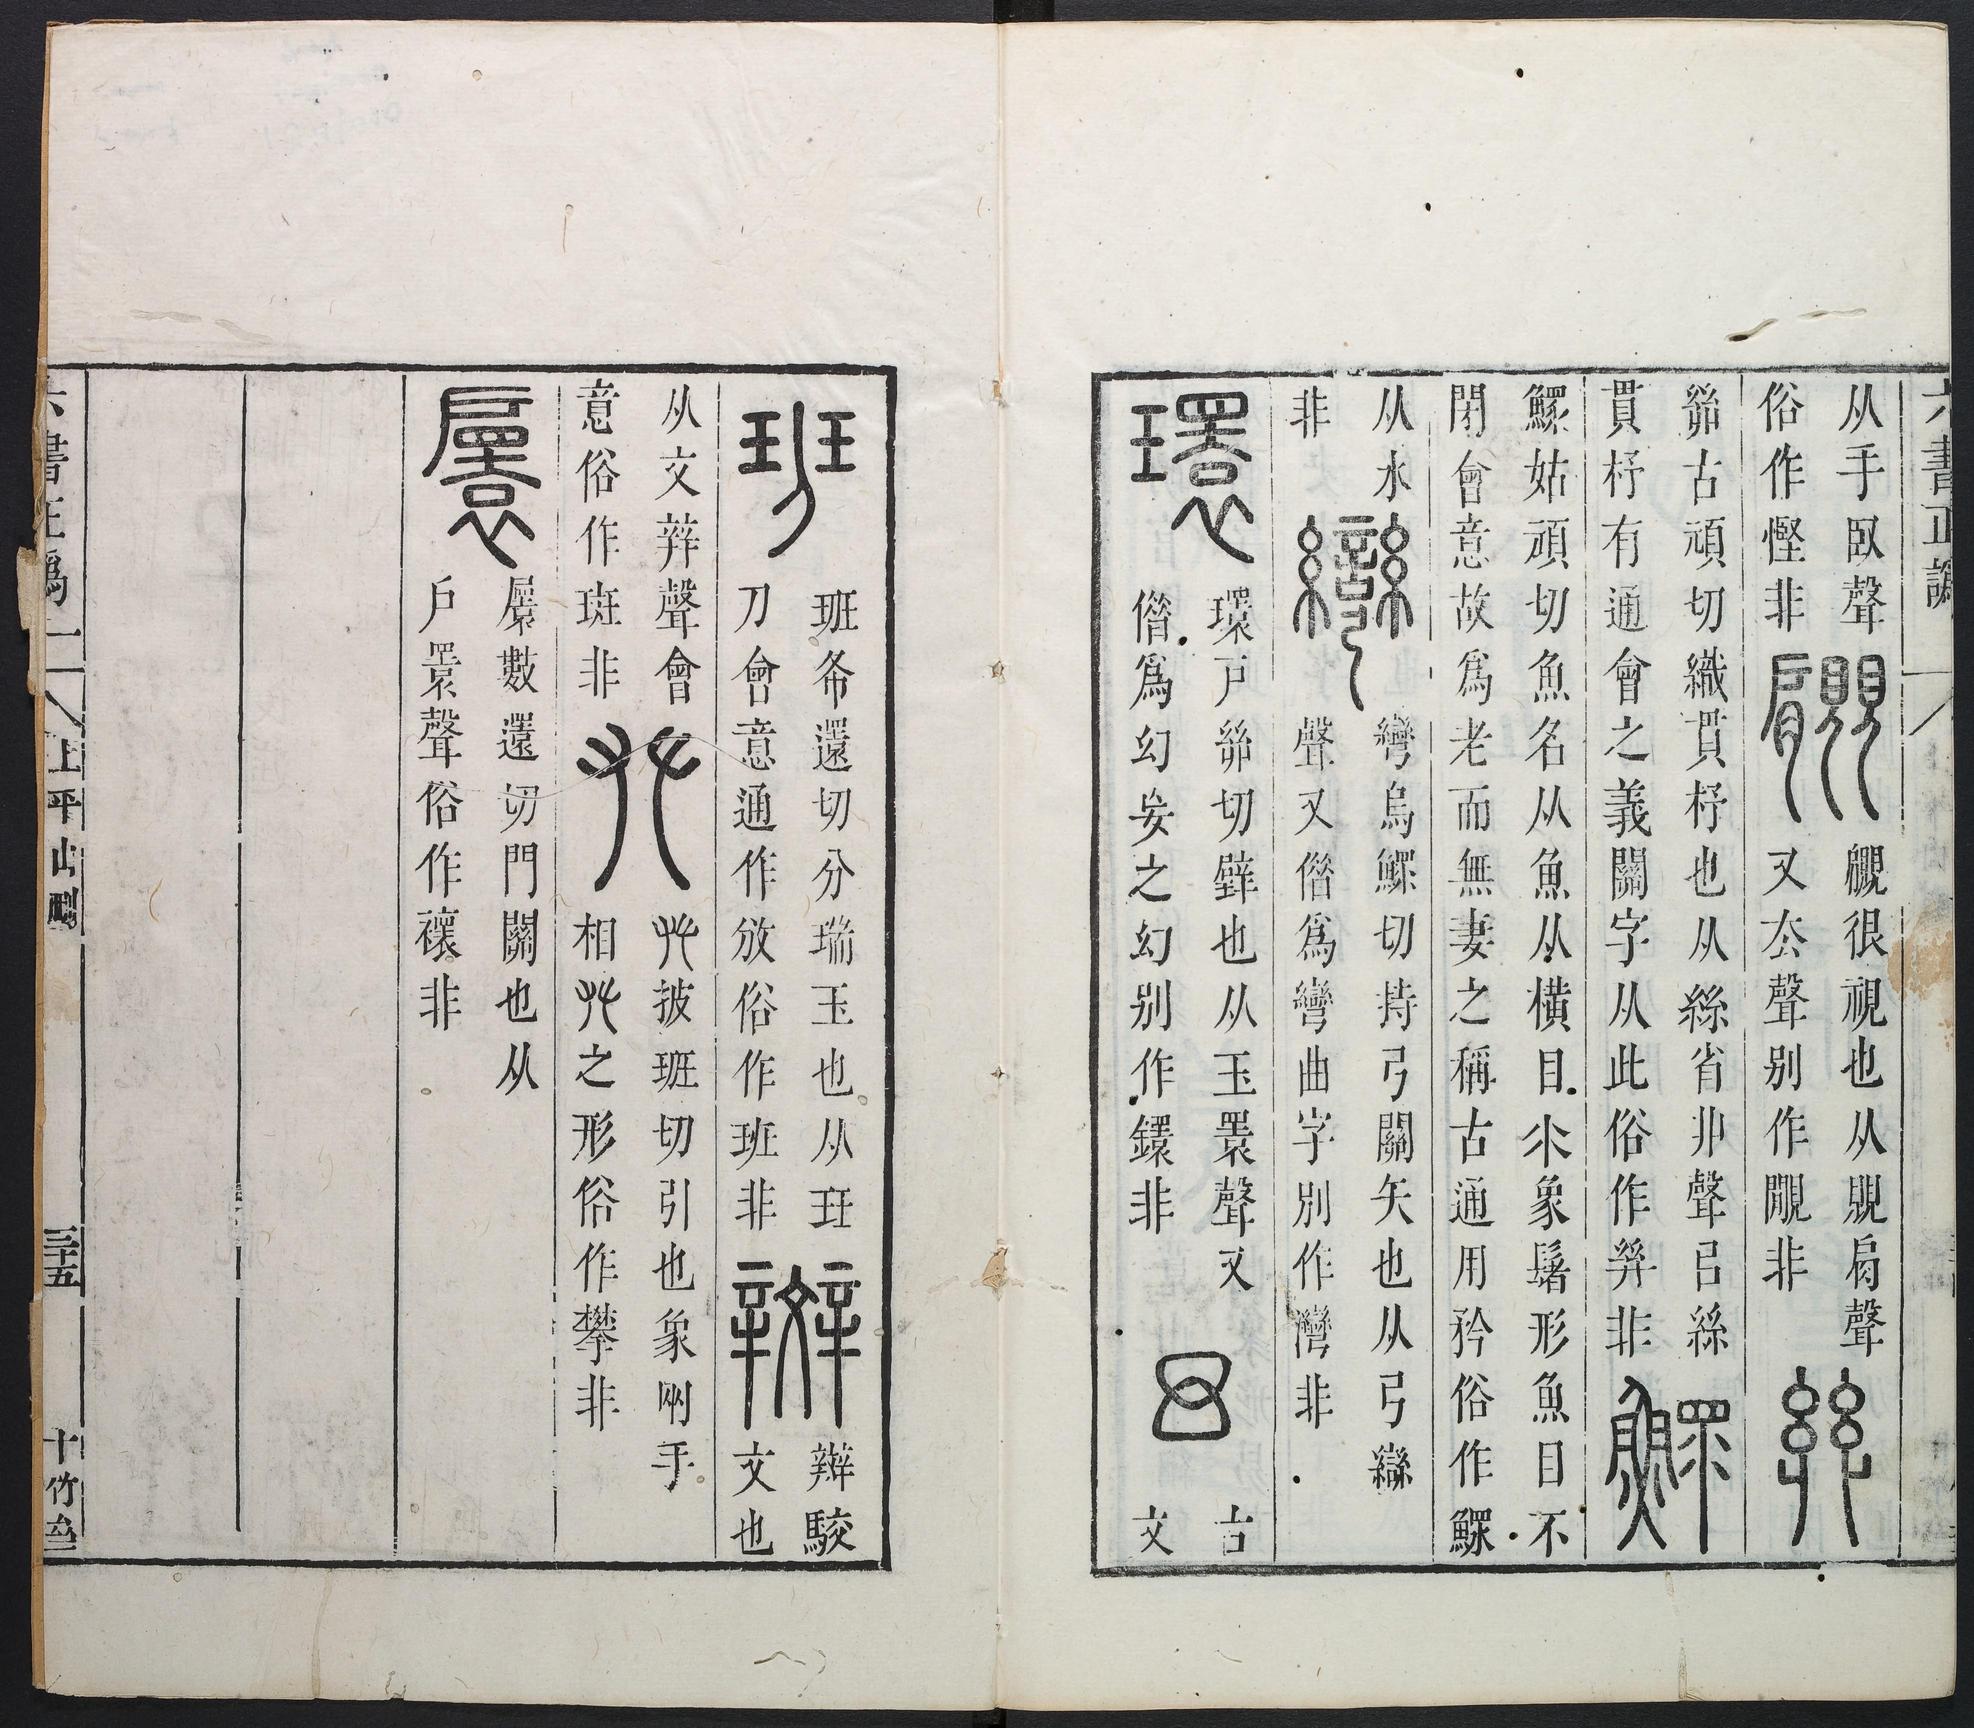 六書正譌
从手臤聲
俗作慳非
覵很視也从覞肩聲
又厺聲別作覸非
𢇇古頑切織貫杼也从絲省丱聲㠯絲
貫杼有通會之義關字从此俗作𢇇非
鰥
鰥姑頑切魚名从魚从橫目氺象鬐形魚目不
閉會意故爲老而無妻之稱古通用矜俗作鰥
从水
非
彎
彎烏鰥切持弓關矢也从弓䜌
聲又僭爲彎曲字別作灣非
環
環戸𢇇切璧也从玉睘聲又
僭爲幻妄之幻別作鐶非
古
文
班
班布還切分瑞玉也从玨
刀會意通作攽俗作班非
辬
辬駮
文也
从文辡聲會
意俗作斑非
𠬜
𠬜披班切引也象兩手
相𠬜之形俗作攀非
㞙
㞙數還切門關也从
戶睘聲俗作㰈非
六書正譌一
上平山刪
三十五
十竹齋